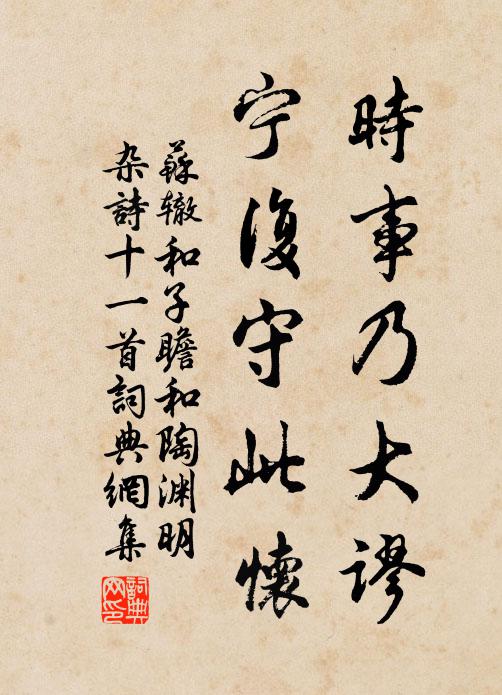 時事乃大謬
宁復守此懷
蘇辙和子瞻和陶渊明
杂詩十一首詞典網集
詞典
网印